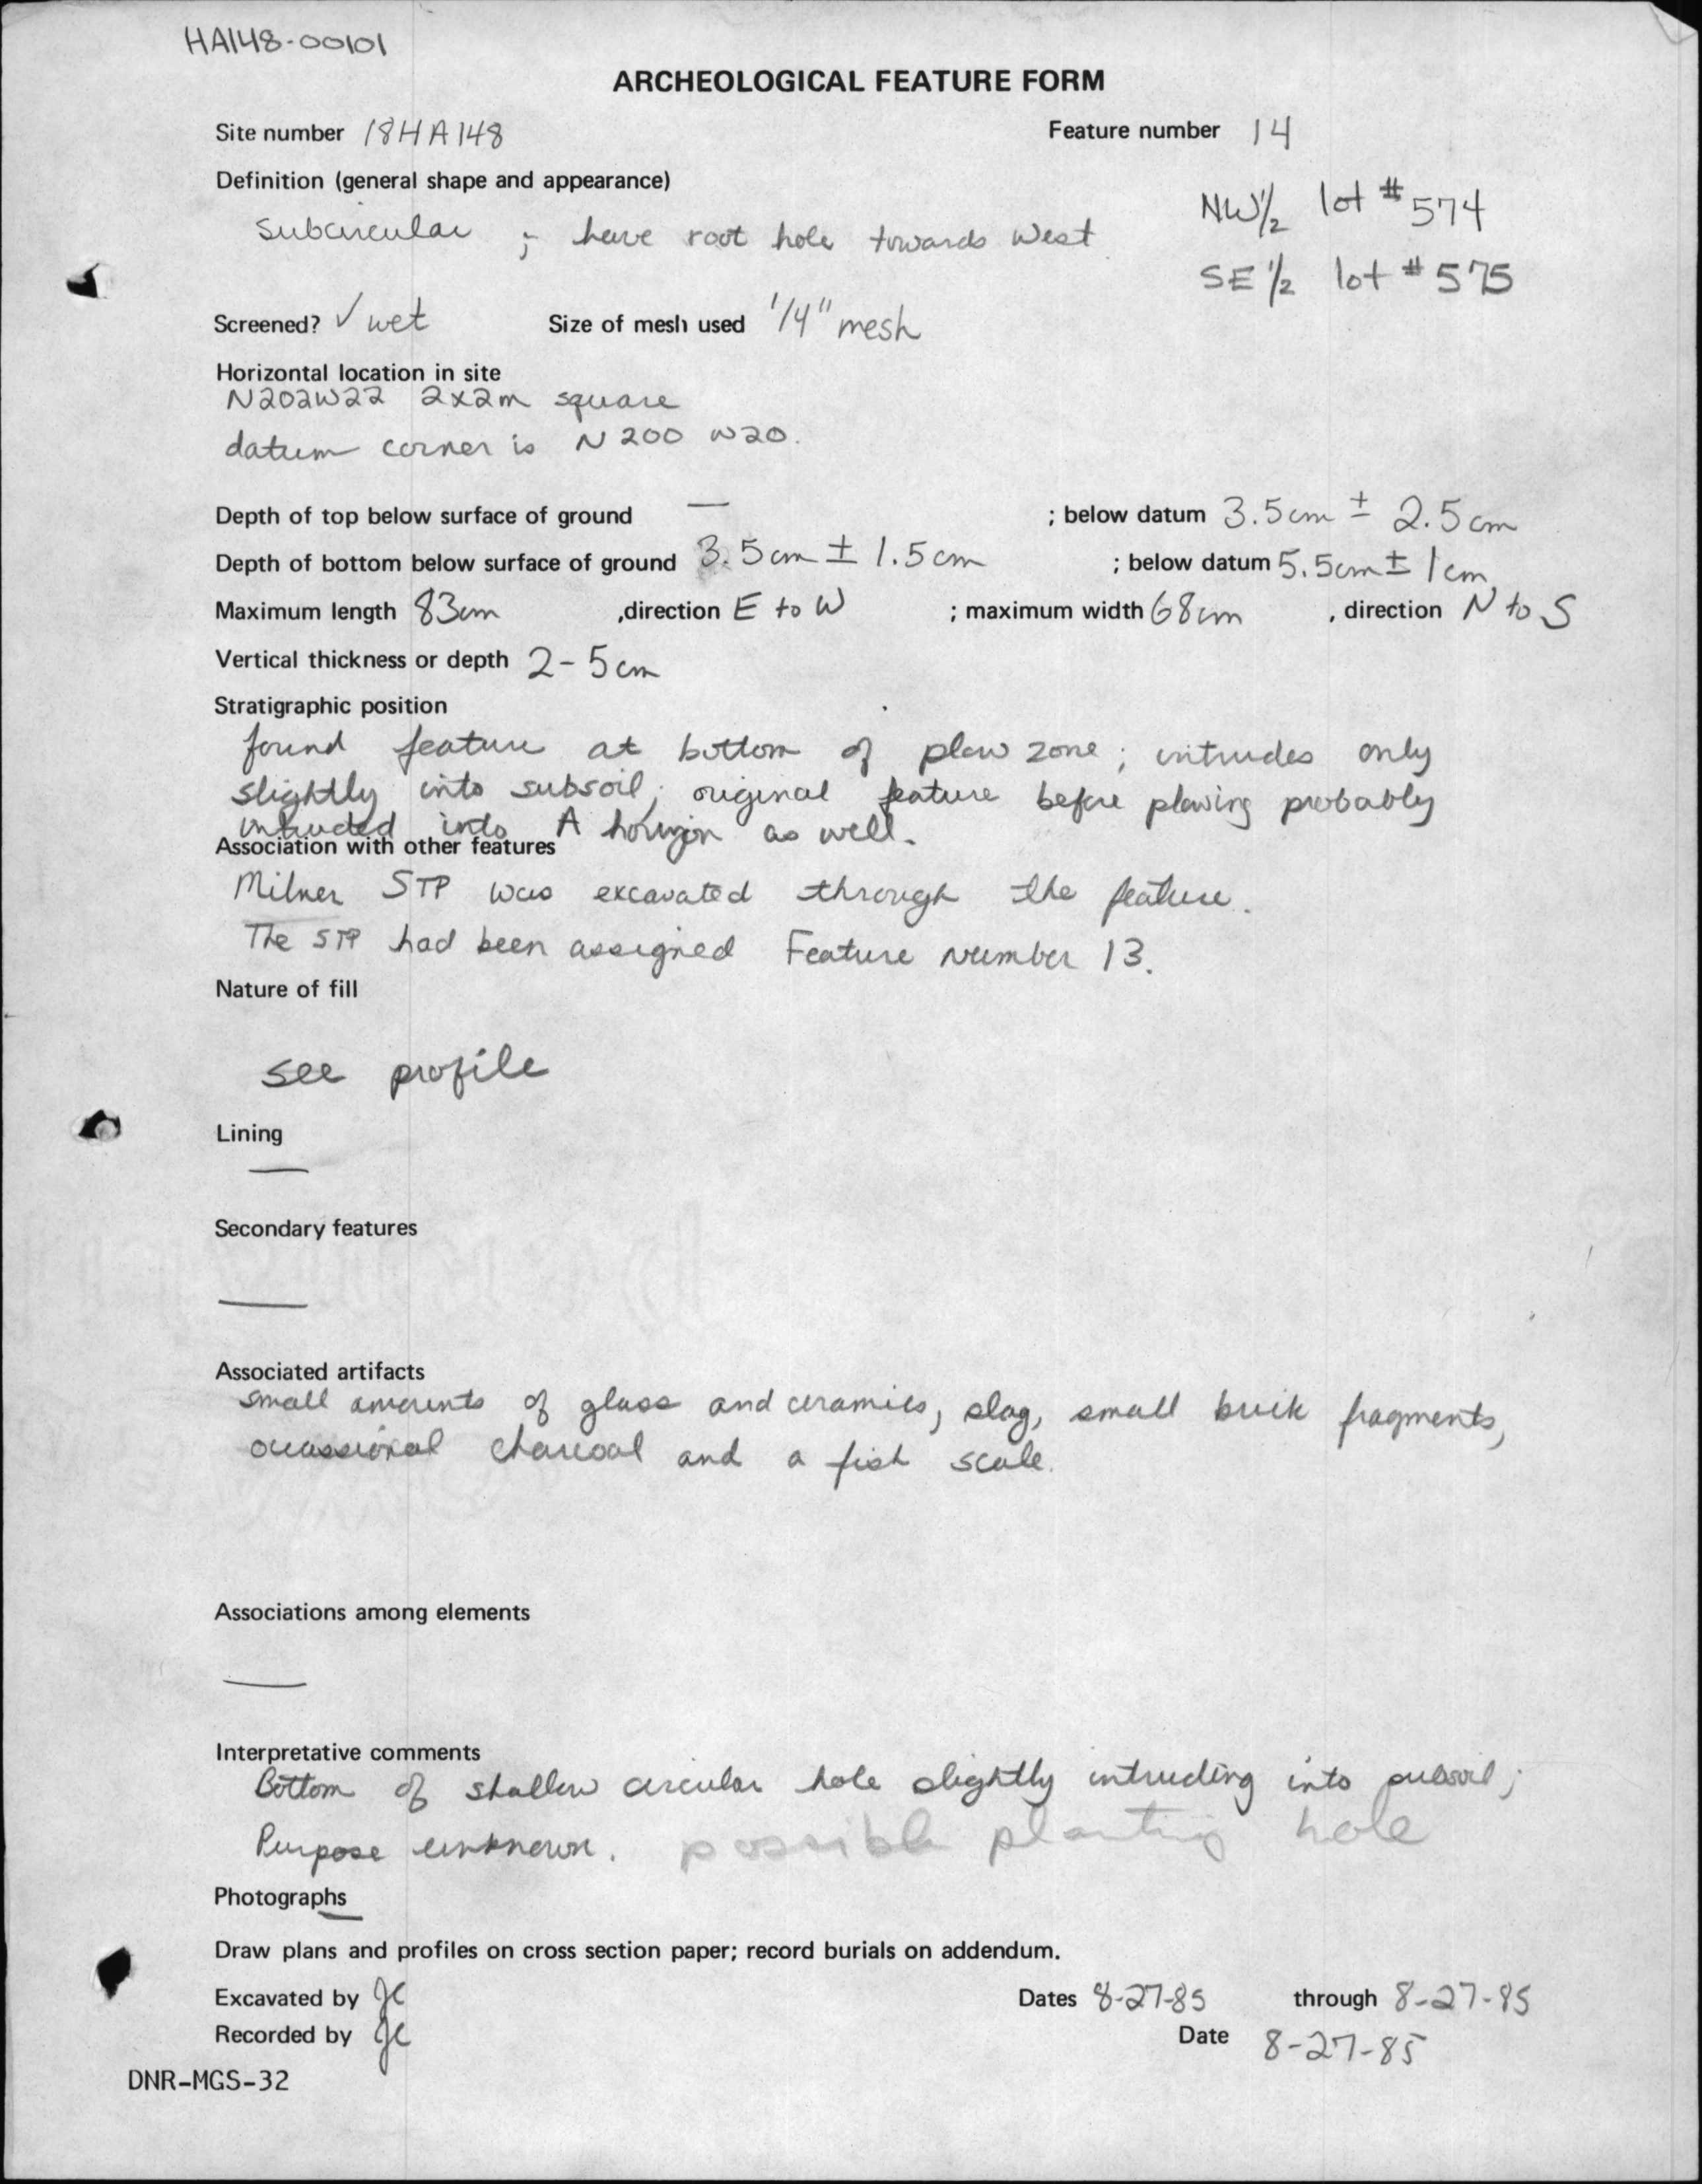 HA148-00101
ARCHEOLOGICAL FEATURE FORM
Site number 18HA148 Feature number 14
Definition (general shape and appearance)
NW 1/2 lot # 574
Subcircular ; have root hole towards West
SE 1/2 lot # 575
Screened? ✓ wet Size of mesh used 1/4" mesh
Horizontal location in site
N202W22 2x2m square
datum corner is N200 W20.
Depth of top below surface of ground — ; below datum 3.5cm ± 2.5cm
Depth of bottom below surface of ground 3.5cm ± 1.5cm ; below datum 5.5cm ± 1cm
Maximum length 83cm ,direction E to W ; maximum width 68cm , direction N to S
Vertical thickness or depth 2-5cm
Stratigraphic position
found feature at bottom of plow zone; intrudes only
slightly into subsoil; original feature before plowing probably
intruded into A horizon as well.
Association with other features
Milner STP was excavated through the feature.
The STP had been assigned Feature Number 13.
Nature of fill
see profile
Lining
—
Secondary features
—
Associated artifacts
small amounts of glass and ceramics, slag, small brick fragments,
occassional charcoal and a fish scale.
Associations among elements
—
Interpretative comments
Bottom of shallow circular hole slightly intruding into subsoil;
Purpose unknown. possible planting hole
Photographs
—
Draw plans and profiles on cross section paper; record burials on addendum.
Excavated by JC Dates 8-27-85 through 8-27-85
Recorded by JC Date 8-27-85
DNR-MGS-32